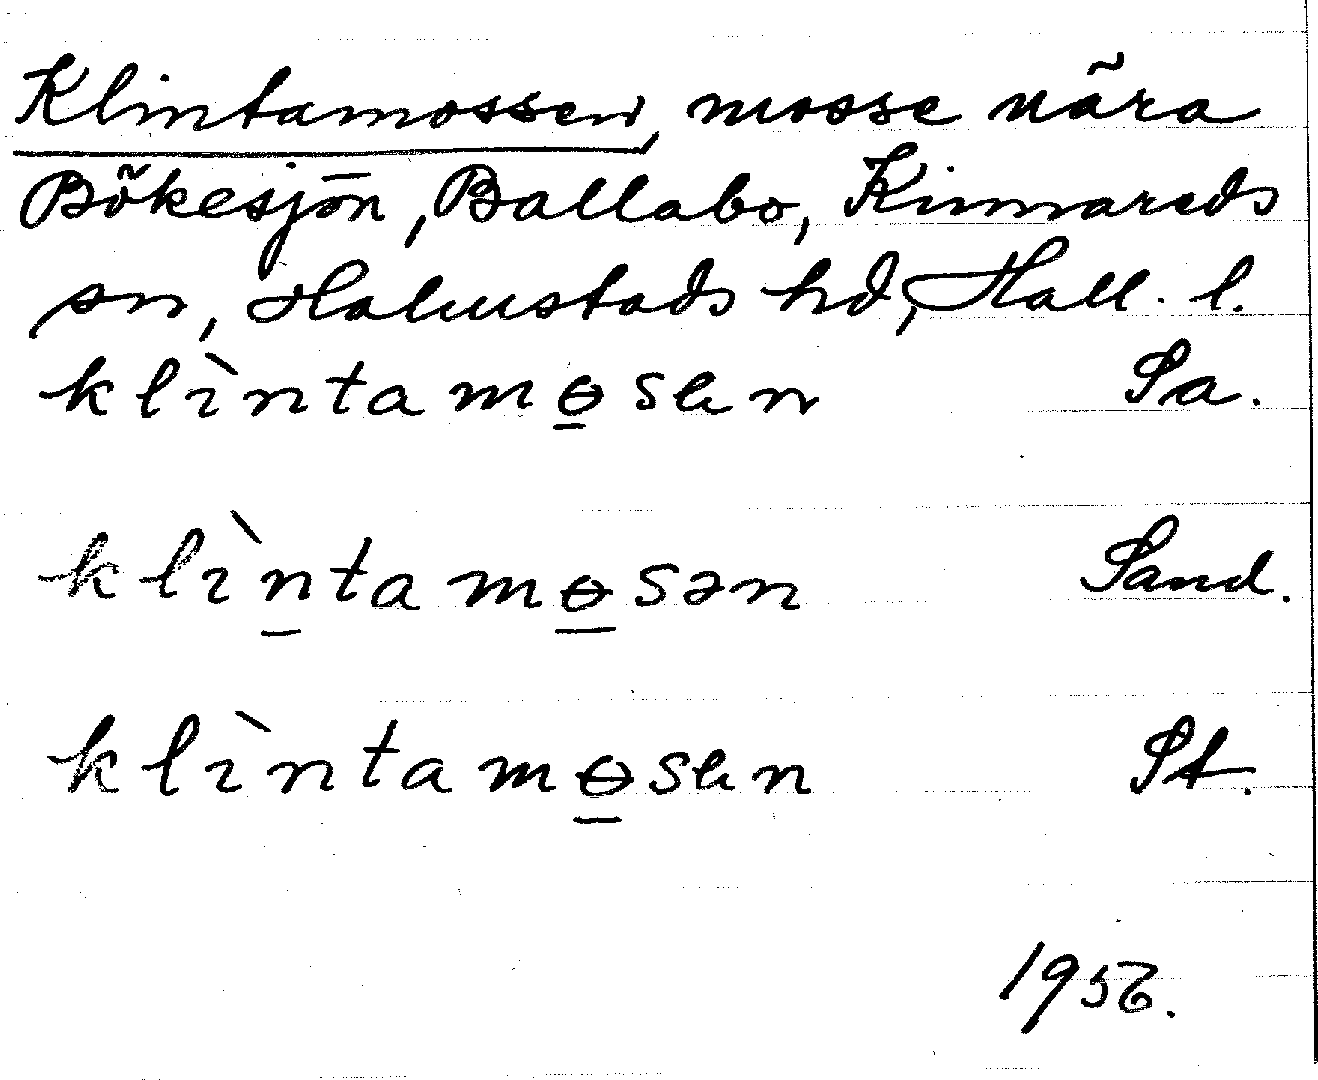 Klintamossen, mosse nära
Bökesjön, Ballabo, Kinnareds
sn, Halmstads hd, Hall. l.
klìntamɵ̲sen Sa.
klìn̲tamɵ̲sən Sand.
klìntamɵ̲sen St.
1956.